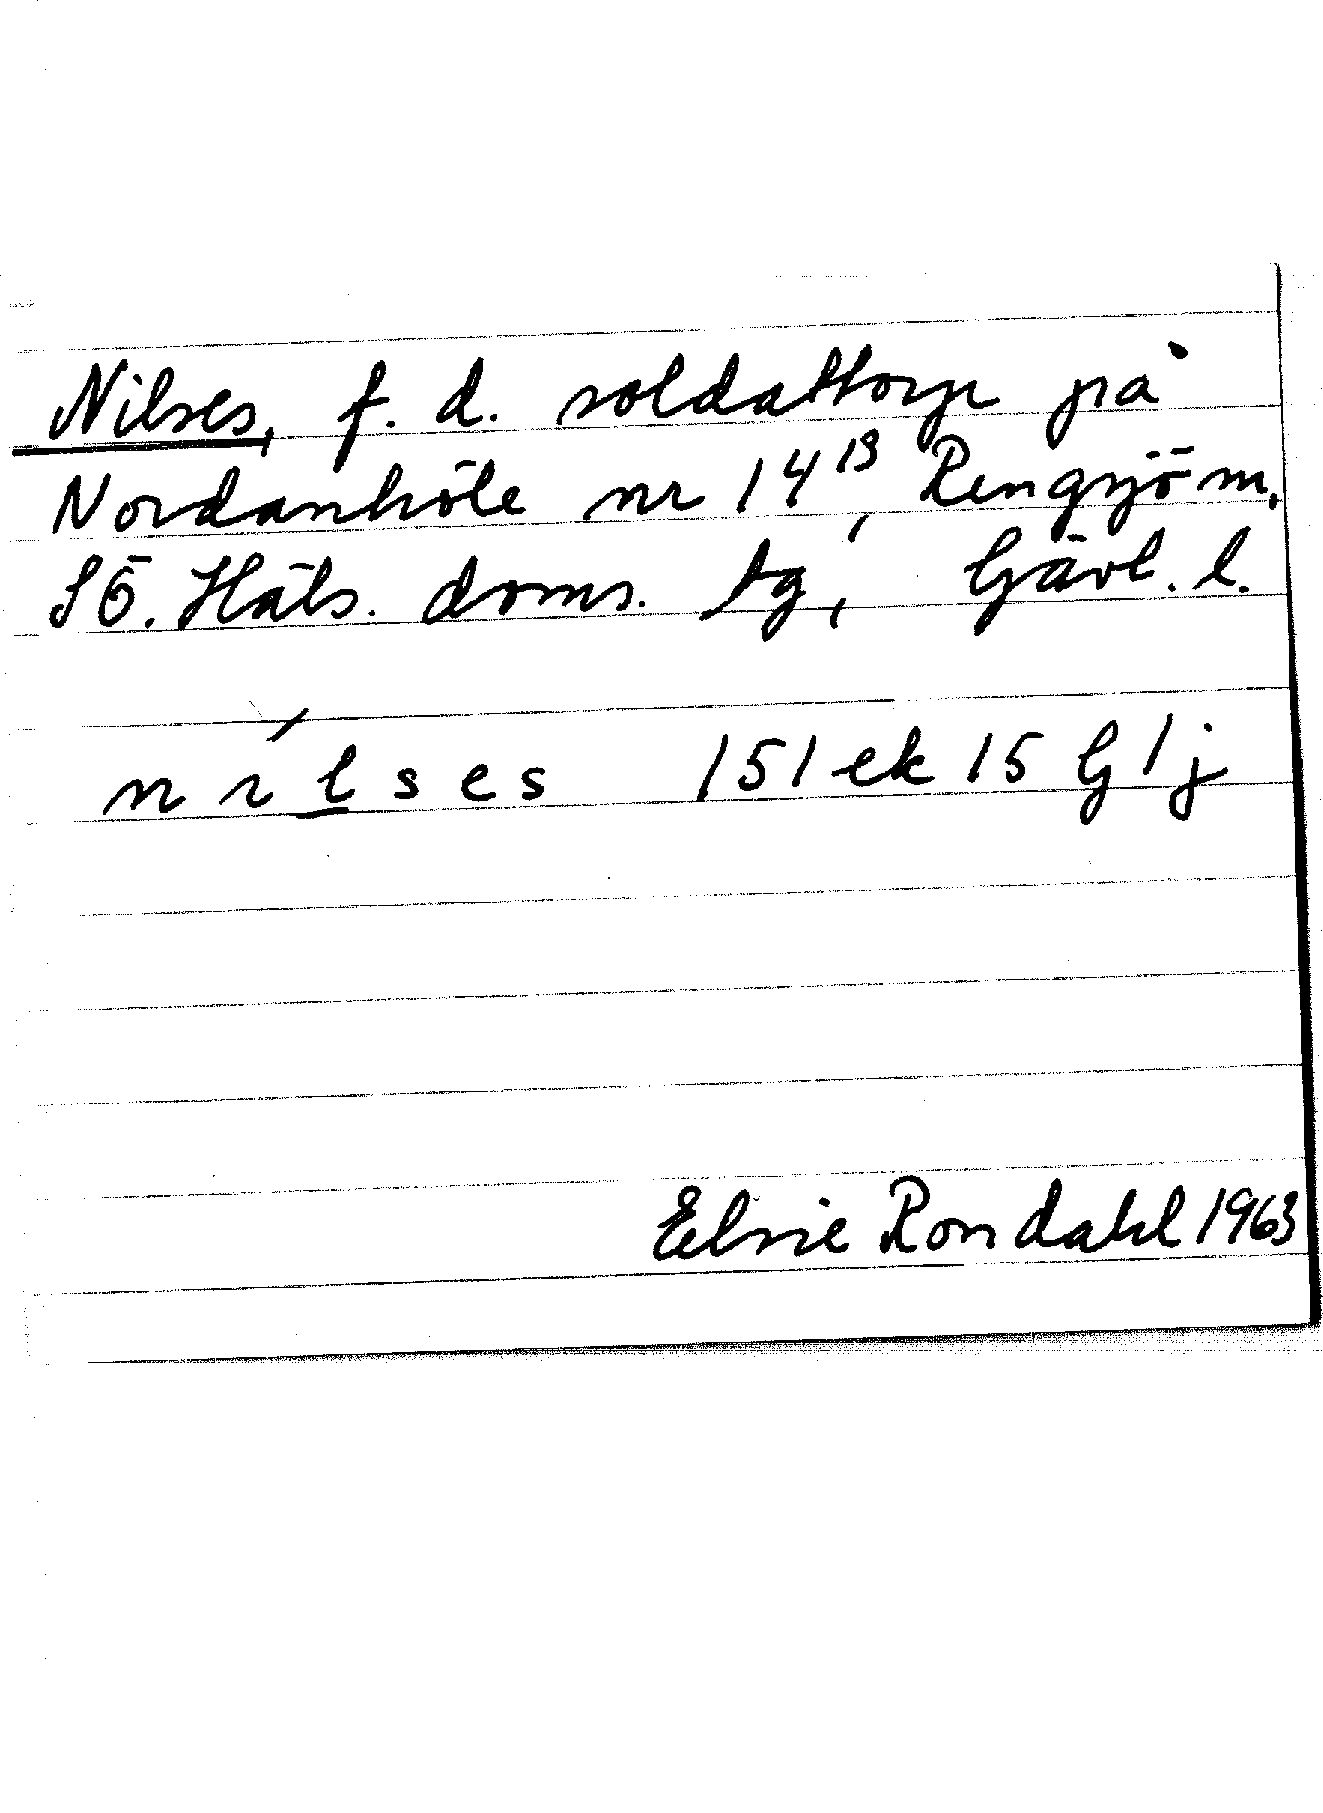 Nilses, f. d. soldattorp på
Nordanhöle nr 14¹³, Rengsjö sn,
SÖ. Häls. doms. tg, Gävl. l.
n ı ́ l s e s 151 ek 15 G 1 j
Elsie Rondahl 1963